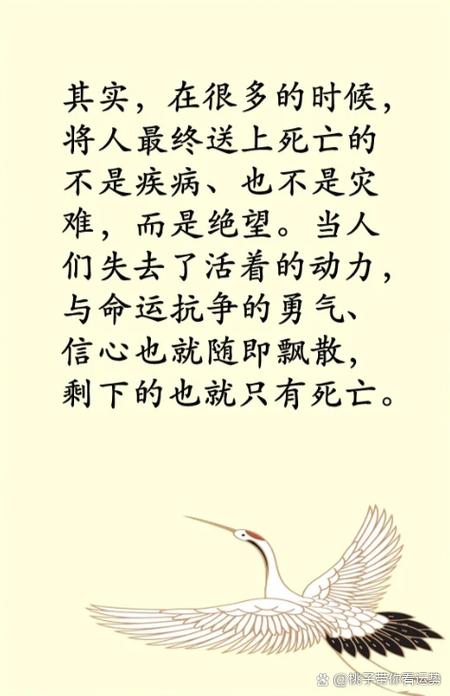 其实，在很多的时候，
将人最终送上死亡的
不是疾病、也不是灾
难，而是绝望。当人
们失去了活着的动力，
与命运抗争的勇气、
信心也就随即飘散，
剩下的也就只有死亡。
@桃子带你看运势